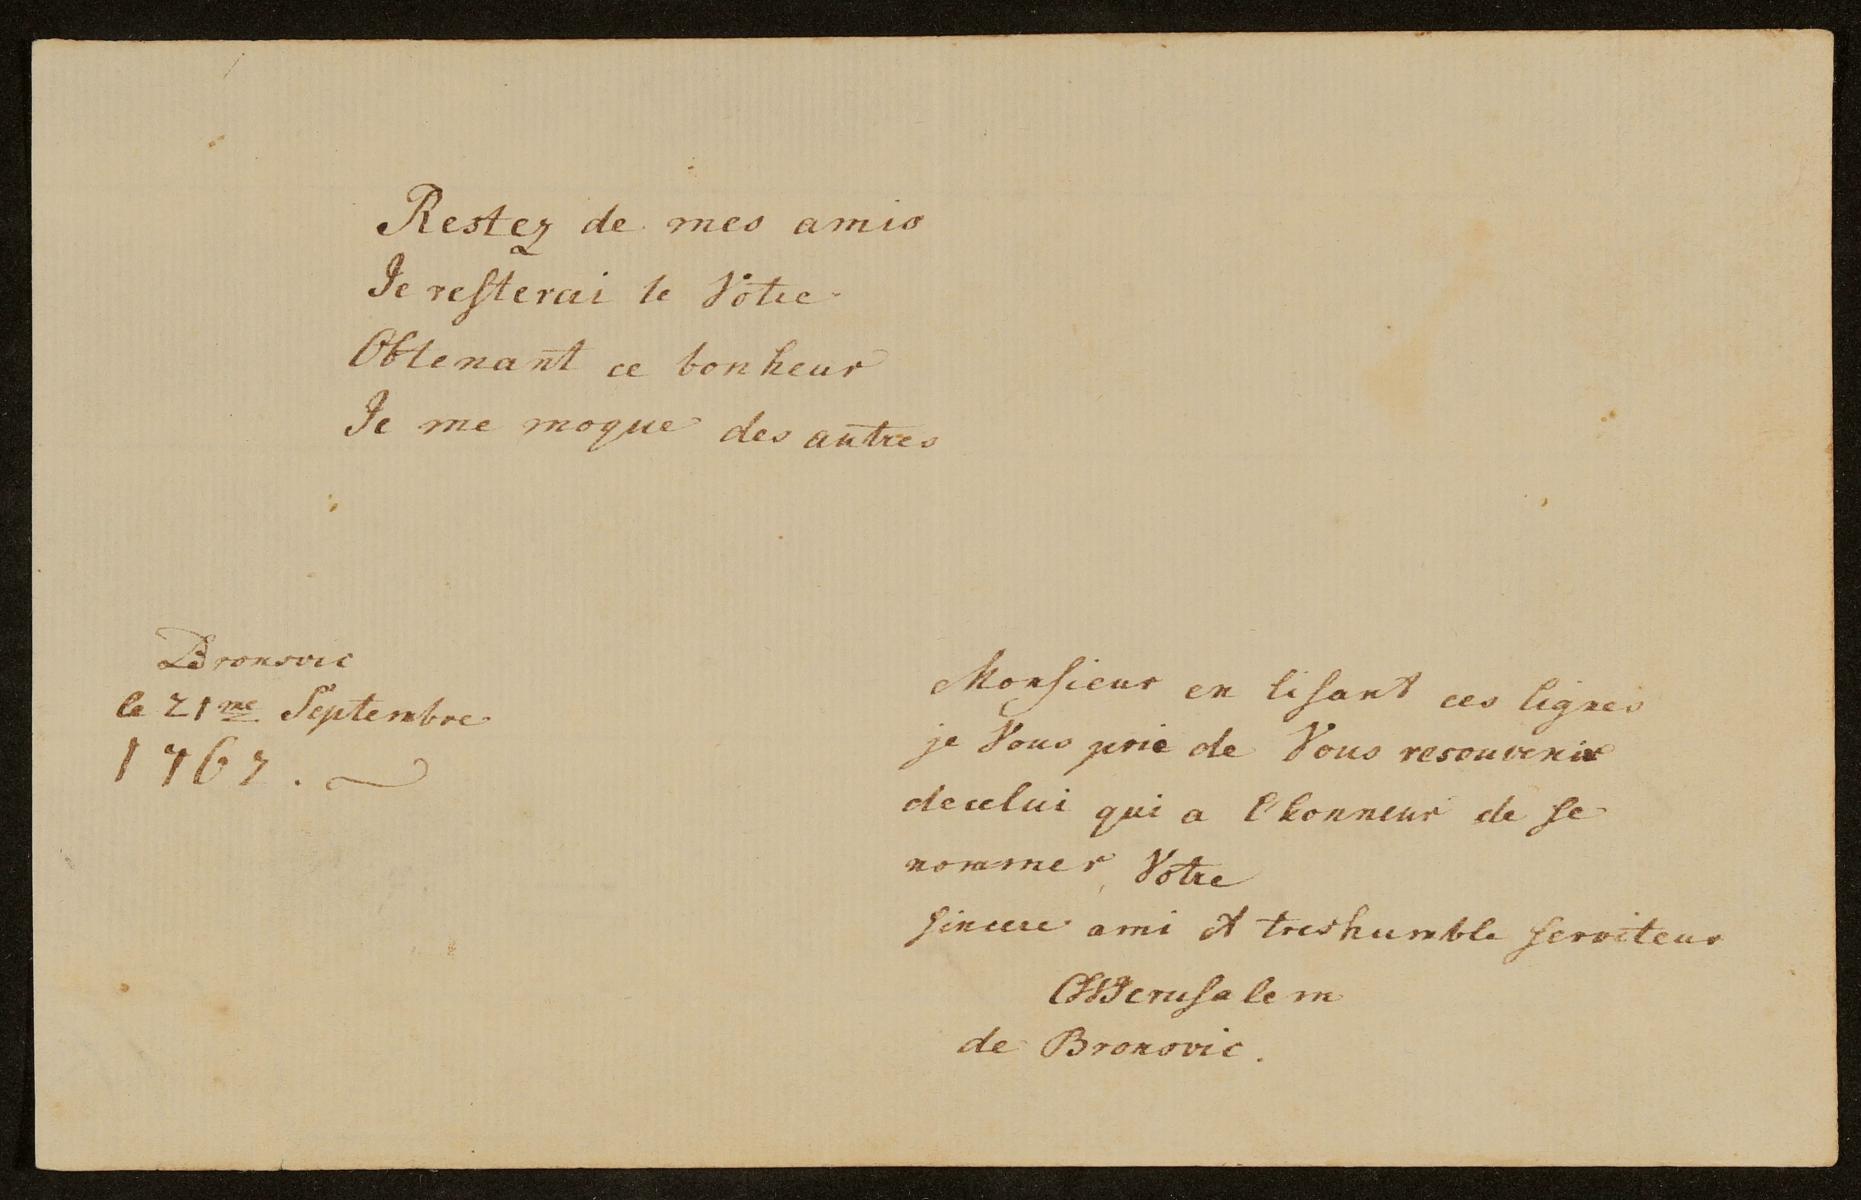 Restez de mes amis
Je resterai le Votre
Obtenant ce bonheur
Je me moque des autres
Bronsvic
le 21me Septembre
1767.
Monsieur en lisant ces lignes
je Vous prie de Vous resouvenir
de celui qui a l'honneur de se
nommer Votre
sincere ami et treshumble serviteur
CWJerusalem
de Bronsvic.